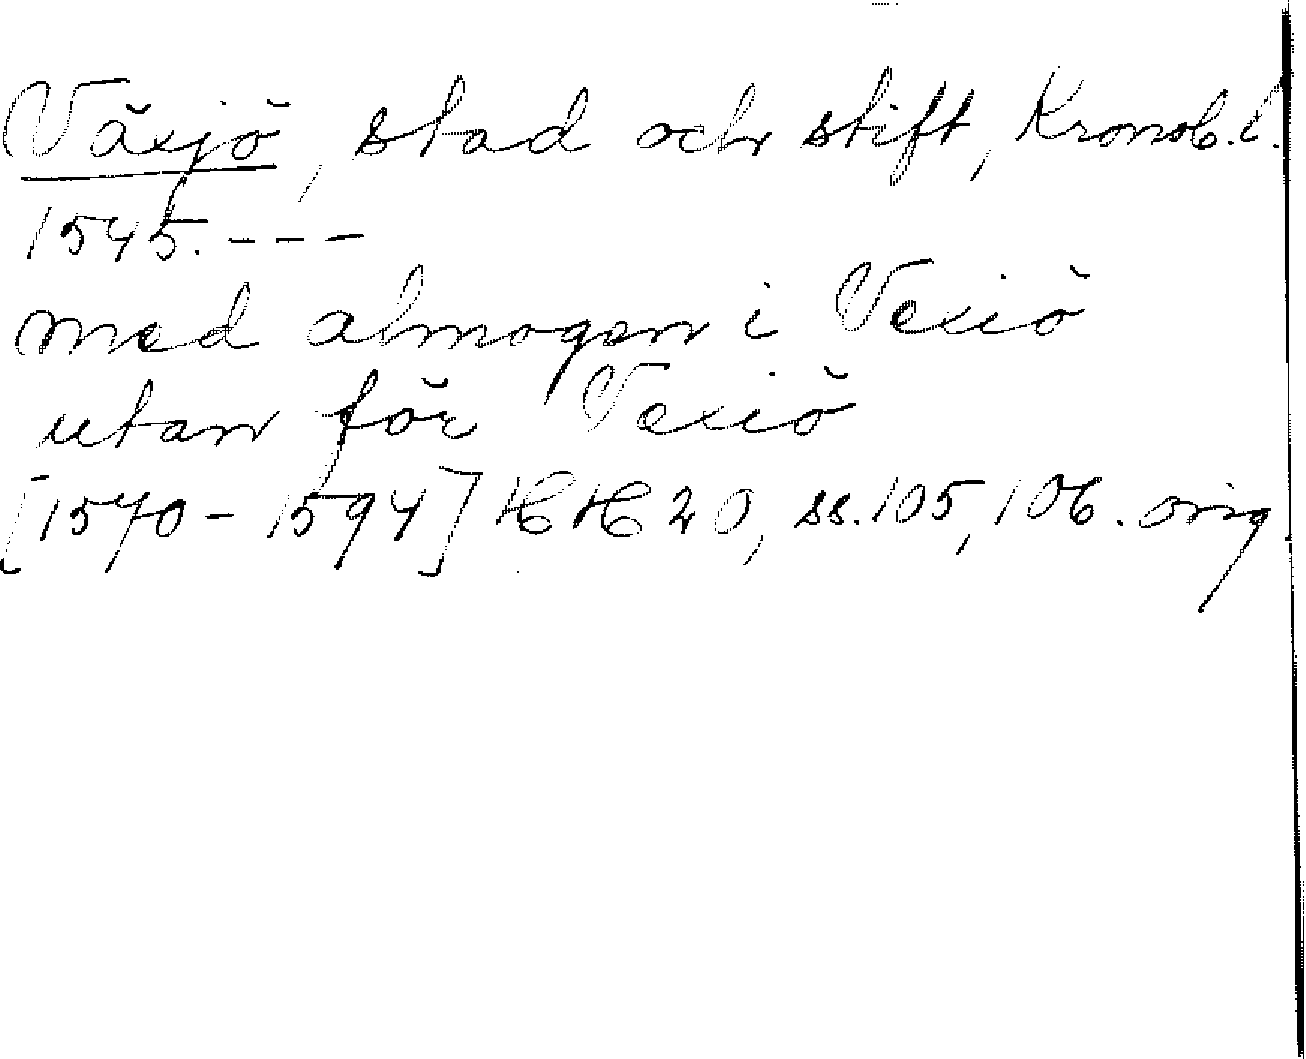 Växjö, stad och stift, Kronob.l.
1545. - - -
med almogen i Vexiö
utan för Vexiö
[1570 - 1594] HH 20, ss. 105, 106. orig